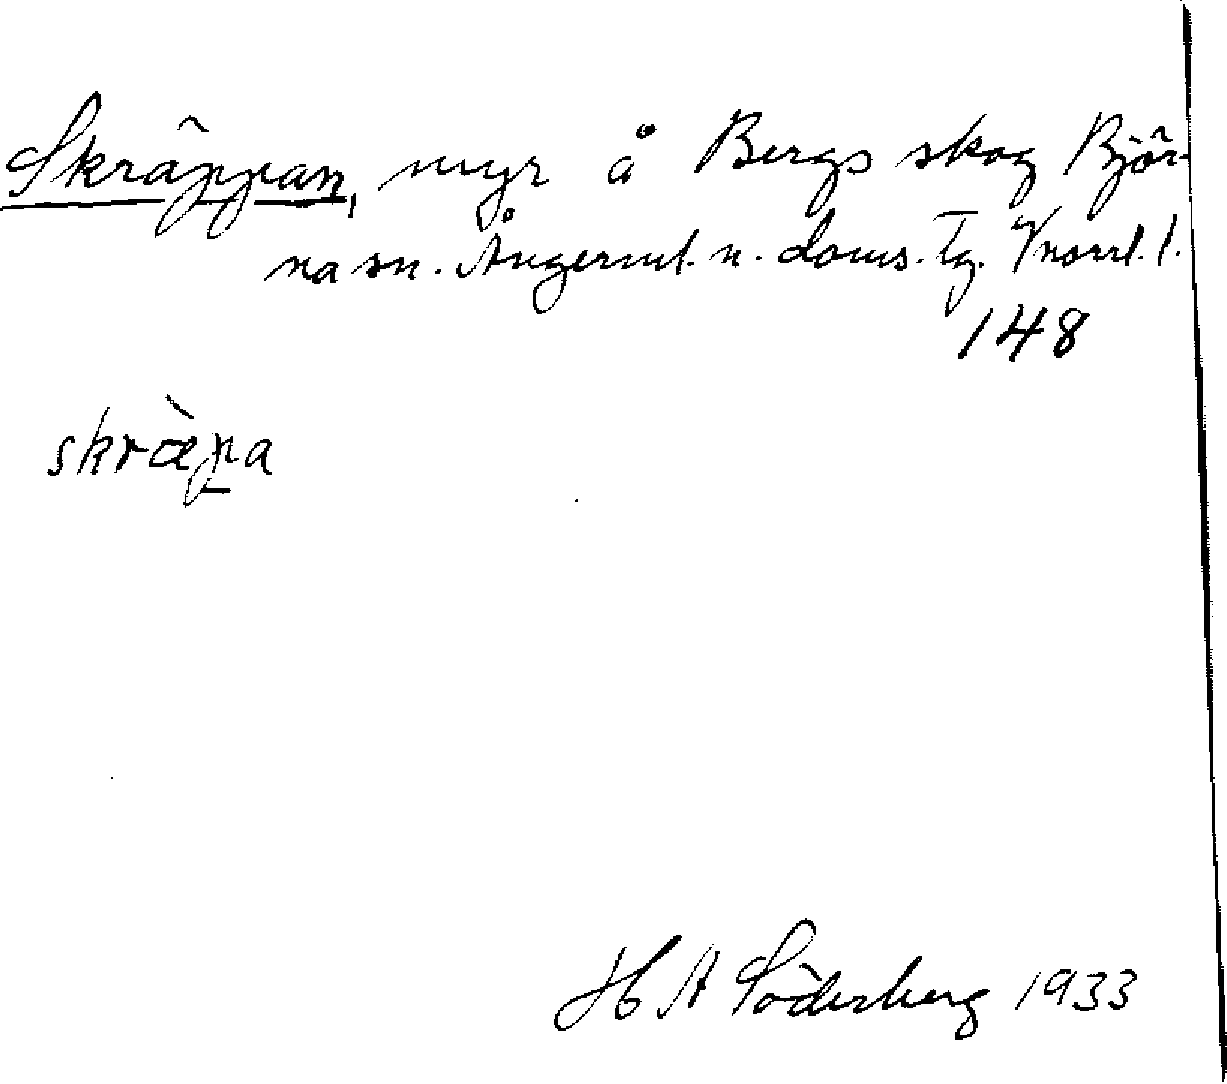 Skräppan, myr å Bergs skog Björ-
na sn. Ångerml. n. doms. tg. Vnorrl. l.
148
skræ̀pa
H A Söderberg 1933